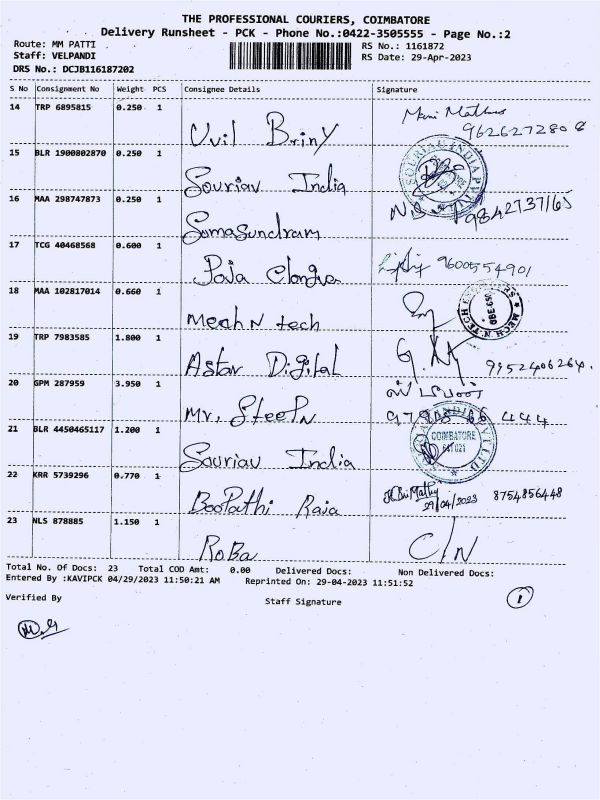 THE PROFESSIONAL COURIERS, COIMBATORE
Delivery Runsheet - PCK - Phone No.:0422-3505555 - Page No.:2
Route: MM PATTI
Staff: VELPANDI
DRS No.: DCJB116187202
RS No.: 1161872
RS Date: 29-Apr-2023
S No Consignment No Weight PCS Consignee Details Signature
14 TRP 6895815 0.250 1 Uvil Briny 9626272808
15 BLR 1900802870 0.250 1 Souriav India SOURIAU INDIA
16 MAA 298747873 0.250 1 Somasundram 9842737165
17 TCG 40468568 0.600 1 9600554901
18 MAA 102817014 0.660 1 Mech N tech MECH N TECH
19 TRP 7983585 1.800 1 Astar Digital 9952406264.
20 GPM 287959 3.950 1 Mr. SteelN
21 BLR 4450465117 1.200 1 Sauriav India COIMBATORE
22 KRR 5739296 0.770 1 BooPathi Raja 29/04/2023 8754856448
23 NLS 878885 1.150 1 RoBa C/N
Total No. Of Docs: 23 Total COD Amt: 0.00 Delivered Docs: Non Delivered Docs:
Entered By :KAVIPCK 04/29/2023 11:50:21 AM Reprinted On: 29-04-2023 11:51:52
Verified By Staff Signature
1